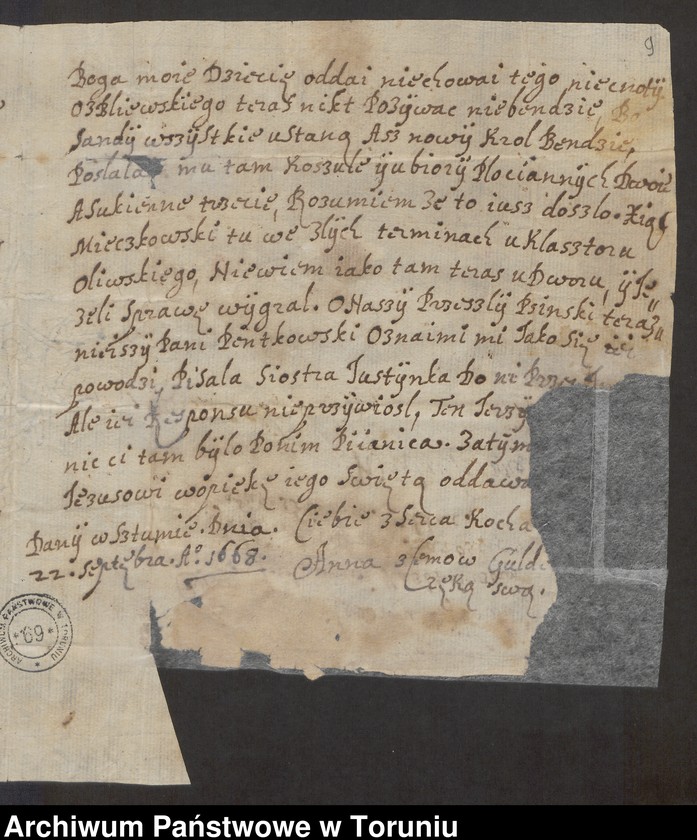 9
Boga moie Dziecię oddai niechowai tego niecnoty
Ozbliewskiego teras nikt Pozÿwac niebendzie Bo
Sandÿ wszÿstkie ustaną Asz nowÿ Krol Bendzie,
Poslala mu tam Koszule ÿ ubiorÿ Plociannÿch Dwoie
A Sukienne trzecie, Rozumiem Ze to iusz doszlo. Xią
Mieczkowski tu we Zlÿch terminach u Klasztoru
Oliwskiego, Niewiem iako tam teras u Dworu, ÿ Je„
Zeli Sprawę wÿgral. O Naszÿ Przeszlÿ Psinski teraz„
nieiszÿ Pani Pentkowski Oznaimi mi Jako Się
powodzi, Pisala Siostra Justÿnka Do ni
Ale iei Responsu nieprzÿwiosl, Ten Jerzÿ
nic ci tam bÿlo Ponim Piianica. Zatÿm
Jezusowi wopiekę iego Swiętą oddawa
Danÿ w Sztumie. Dnia. Ciebie z Serca Kocha
22. Septębra. A.º 1668. Anna z Gulde
ręką swą.
ARCHIWUM PAŃSTWOWE W TORUNIU
* 69 *
Archiwum Państwowe w Toruniu